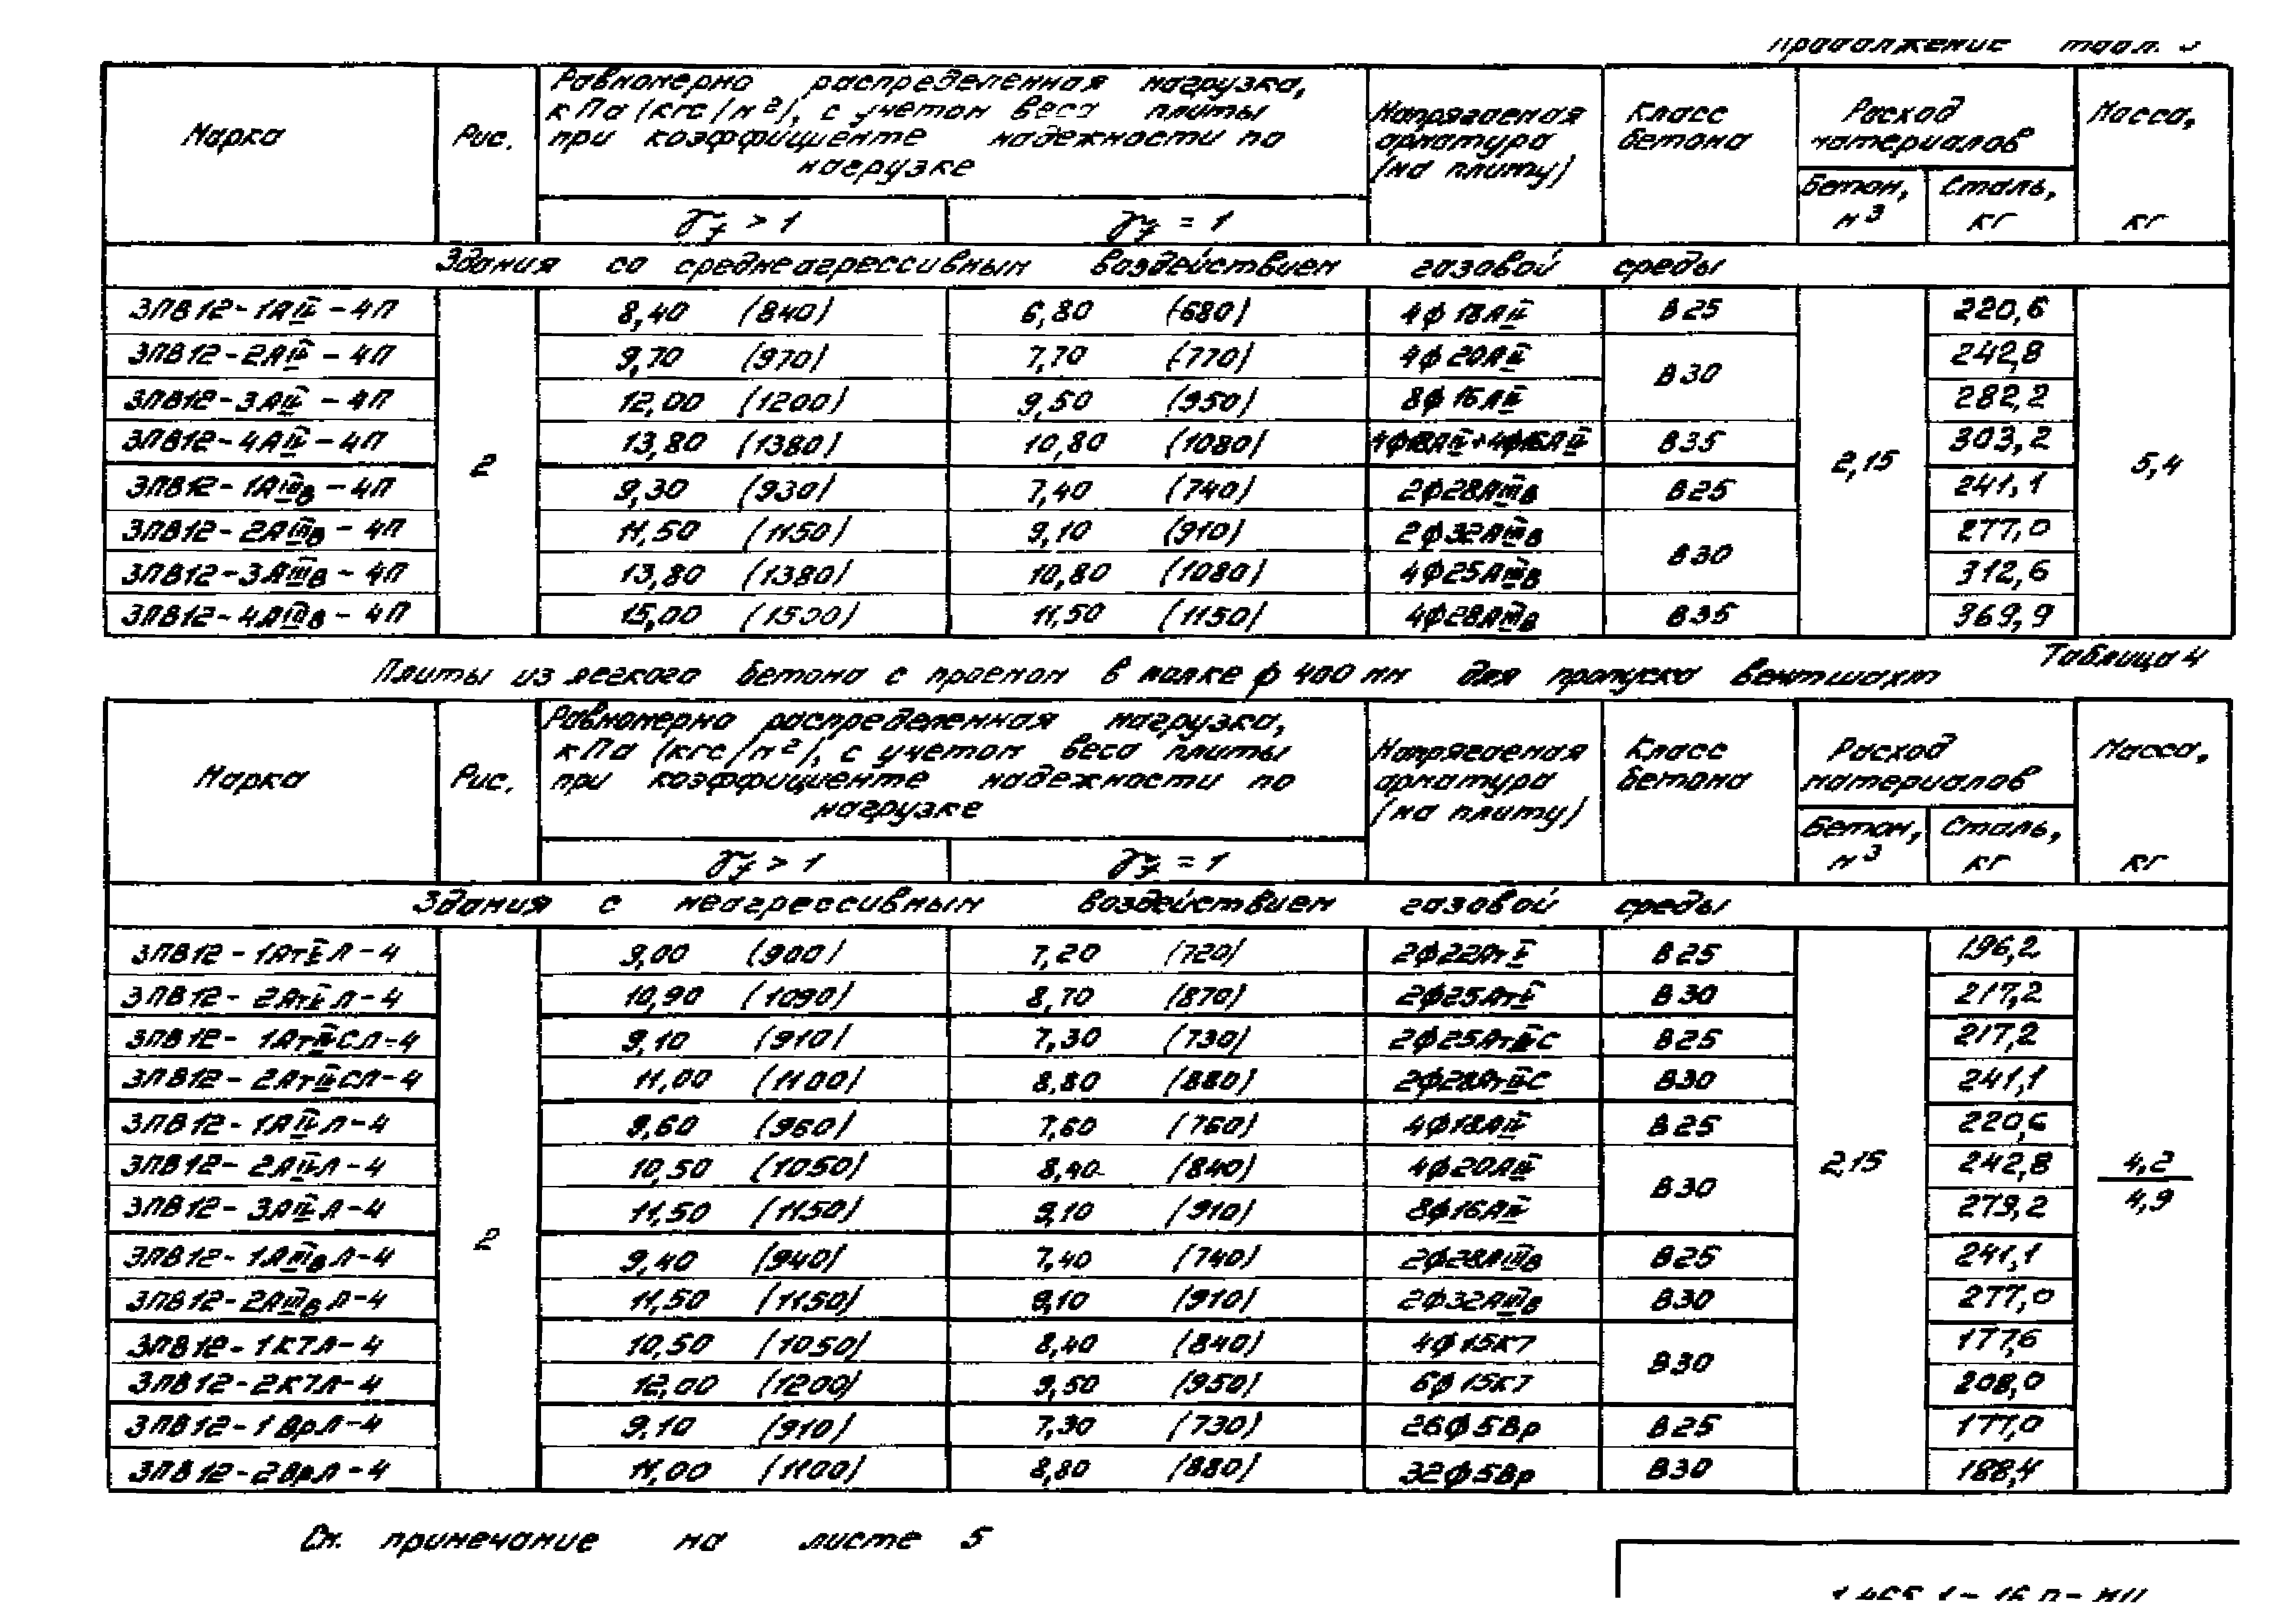 Продолжение табл. 3
Марка
Рис.
Равномерно распределенная нагрузка,
кПа (кгс/м²), с учетом веса плиты
при коэффициенте надежности по
нагрузке
γf > 1
γf = 1
Напрягаемая
арматура
(на плиту)
Класс
бетона
Расход
материалов
Бетон,
м³
Сталь,
кг
Масса,
кг
Здания со среднеагрессивным воздействием газовой среды
3ПВ12-1АIV-4П 8,40 (840) 6,80 (680) 4ф18АIV В25 220,6
3ПВ12-2АIV-4П 9,70 (970) 7,70 (770) 4ф20АIV В30 242,8
3ПВ12-3АIV-4П 12,00 (1200) 9,50 (950) 8ф16АIV 282,2
3ПВ12-4АIV-4П 13,80 (1380) 10,80 (1080) 4ф18АIV+4ф16АIV В35 303,2
2 2,15 5,4
3ПВ12-1АIIIв-4П 9,30 (930) 7,40 (740) 2ф28АIIIв В25 241,1
3ПВ12-2АIIIв-4П 11,50 (1150) 9,10 (910) 2ф32АIIIв В30 277,0
3ПВ12-3АIIIв-4П 13,80 (1380) 10,80 (1080) 4ф25АIIIв 312,6
3ПВ12-4АIIIв-4П 15,00 (1500) 11,50 (1150) 4ф28АIIIв В35 369,9
Таблица 4
Плиты из легкого бетона с проемом в полке ф 400 мм для пропуска вентшахт
Марка
Рис.
Равномерно распределенная нагрузка,
кПа (кгс/м²), с учетом веса плиты
при коэффициенте надежности по
нагрузке
γf > 1
γf = 1
Напрягаемая
арматура
(на плиту)
Класс
бетона
Расход
материалов
Бетон,
м³
Сталь,
кг
Масса,
кг
Здания с неагрессивным воздействием газовой среды
3ПВ12-1АтVЛ-4 9,00 (900) 7,20 (720) 2ф22АтV В25 196,2
3ПВ12-2АтVЛ-4 10,90 (1090) 8,70 (870) 2ф25АтV В30 217,2
3ПВ12-1АтIVСЛ-4 9,10 (910) 7,30 (730) 2ф25АтIVС В25 217,2
3ПВ12-2АтIVСЛ-4 11,00 (1100) 8,80 (880) 2ф28АтIVС В30 241,1
3ПВ12-1АIVЛ-4 9,60 (960) 7,60 (760) 4ф18АIV В25 220,6
3ПВ12-2АIVЛ-4 10,50 (1050) 8,40 (840) 4ф20АIV В30 2,15 242,8 4,2
3ПВ12-3АIVЛ-4 11,50 (1150) 9,10 (910) 8ф16АIV 279,2 4,9
2
3ПВ12-1АIIIвЛ-4 9,40 (940) 7,40 (740) 2ф28АIIIв В25 241,1
3ПВ12-2АIIIвЛ-4 11,50 (1150) 9,10 (910) 2ф32АIIIв В30 277,0
3ПВ12-1К7Л-4 10,50 (1050) 8,40 (840) 4ф15К7 В30 177,6
3ПВ12-2К7Л-4 12,00 (1200) 9,50 (950) 6ф15К7 208,0
3ПВ12-1ВрЛ-4 9,10 (910) 7,30 (730) 26ф5Вр В25 177,0
3ПВ12-2ВрЛ-4 11,00 (1100) 8,80 (880) 32ф5Вр В30 188,4
См. примечание на листе 5